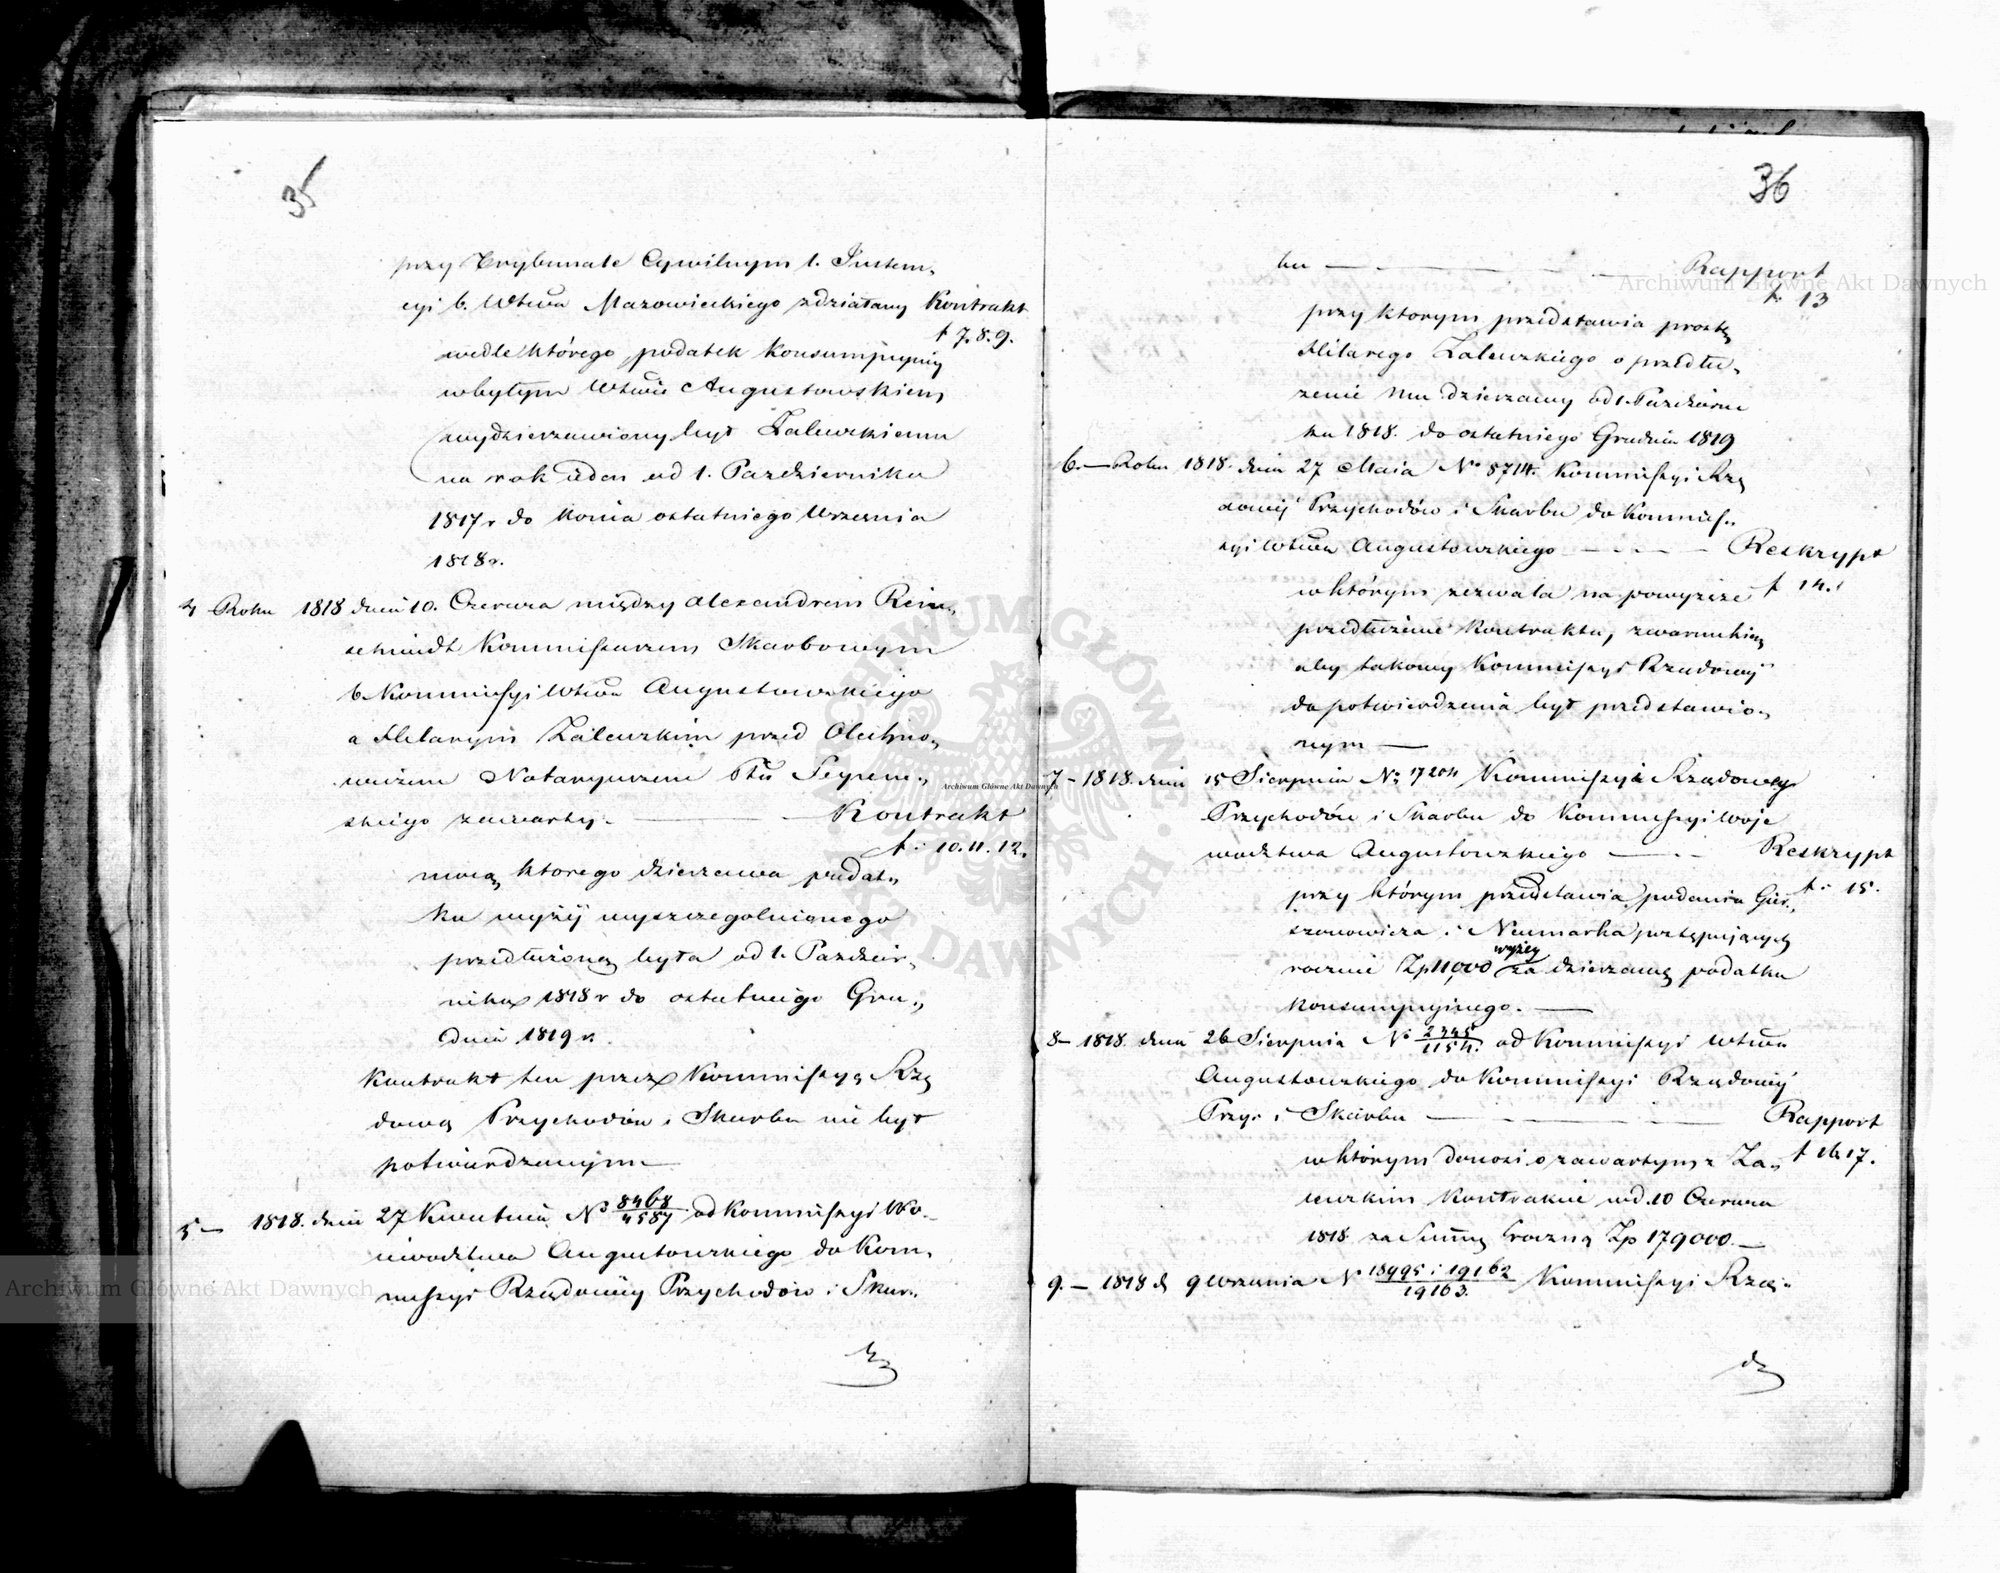 35
przy Trybunale Cywilnym 1. Instan„
cyi b. Wtwa Mazowieckiego zdziałany Kontrakt
f 7. 8. 9.
wedle którego podatek Konsumpcyiny
w byłym Wtwie Augustowskiem
wydzierzawiony był Zalewskiemu
na rok ieden od 1. Pazdziernika
1817 r do konca ostatniego Września
1818 r.
4 Roku 1818 dnia 10. Czerwca między Alexandrem Rein„
schmidt Kommissarzem Skarbowym
b. Kommissyi Wtwa Augustowskiego
a Hilarym Zalewskim przed Olechno„
wiczem Notaryuszem Ptu Seynen„
skiego zawarty. — Kontrakt
f. 10. 11. 12.
mocą ktorego dzierzawa podat„
ku wyżéj wyszczegolnionego
przedłużoną była od 1. Paździer„
nika 1818 r do ostatniego Gru„
dnia 1819 r.
Kontrakt ten przez Kommissyą Rzą
dową Przychodów i Skarbu nie był
potwierdzonym —
5 — 1818. dnia 27 Kwietnia No 8468/4587 od Kommissyi Wo„
iewodztwa Augustowskiego do Kom„
missyi Rządowéy Przychodów i Skar„
36
bu — Rapport
f. 13
przy ktorym przedstawia prosbę
Hilarego Zalewskiego o przedłu„
zenie mu dzierzawy od 1. Pazdzierni
ka 1818. do ostatniego Grudnia 1819
6. — Roku 1818. dnia 27 Maia No 8714. Kommissyi Rzą
dowéj Przychodów i Skarbu do Kommis„
syi Wtwa Augustowskiego — Reskrypt
f 14.
w którym zezwala na powyższe
przedłużenie Kontraktu, z warunkiem
aby takowy Kommissyi Rządowéj
do potwierdzenia był przedstawio„
nym —
7 — 1818. dnia 15 Sierpnia No 17204 Kommissyi Rządowey
Przychodów i Skarbu do Kommissyi Woje
wodztwa Augustowskiego — Reskrypt
f. 15.
przy którym przedstawia podania Gier„
szonowicza i Neumarka postępujących
rocznie Zp 11,000 wyżey za dzierzawę podatku
Konsumpcyjnego. —
8 — 1818. dnia 26 Sierpnia No 2345/1154. od Kommissyi Wtwa
Augustowskiego do Kommissyi Rządowéj
Przy. i Skarbu — Rapport
f 16 17.
w którym donosi o zawartym z Za„
lewskim Kontrakcie w d. 10 Czerwca
1818 za Summę roczną Zp 179000. —
9. — 1818 d. 9 Września No 18995 i 19162/19163. Kommissyi Rzą„
dz
Archiwum Główne Akt Dawnych
Archiwum Główne Akt Dawnych
Archiwum Główne Akt Dawnych
ARCHIWUM GŁÓWNE AKT DAWNYCH